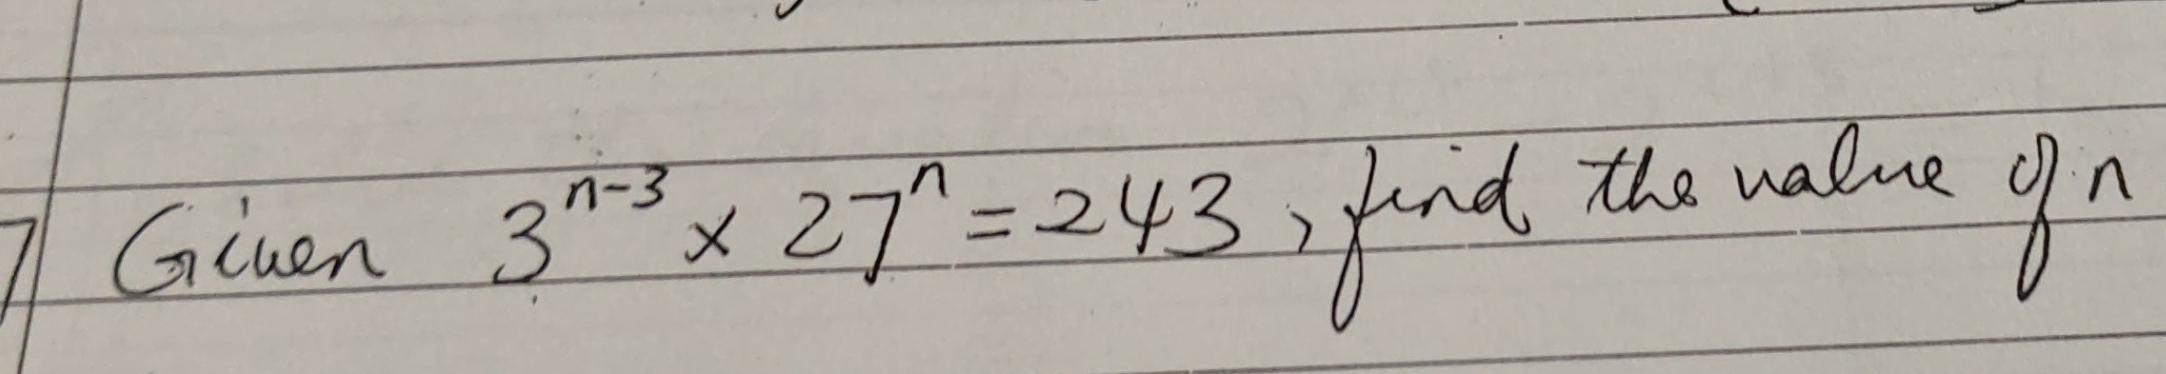 7 Given 3^{n-3} × 27^n = 243, find the value of n